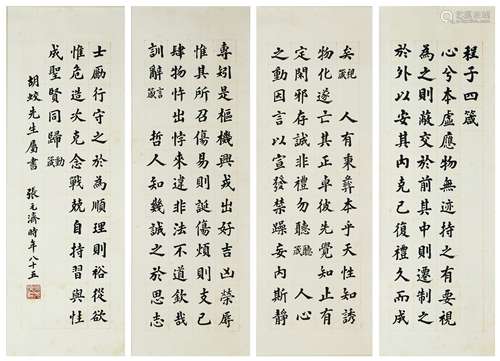 程子四箴
心兮本虛應物無迹持之有要視
為之則蔽交於前其中則遷制之
於外以安其內克己復禮久而成
矣 視箴 人有秉彝本乎天性知誘
物化遂亡其正卓彼先覺知止有
定閑邪存誠非禮勿聽 聽箴 人心
之動因言以宣發禁躁妄內斯靜
專矧是樞機興戎出好吉凶榮辱
惟其所召傷易則誕傷煩則支己
肆物忤出悖來違非法不道欽哉
訓辭 言箴 哲人知幾誠之於思志
士勵行守之於為順理則裕從欲
惟危造次克念戰兢自持習與性
成聖賢同歸 動箴
胡 先生屬書 張元濟時年八十五